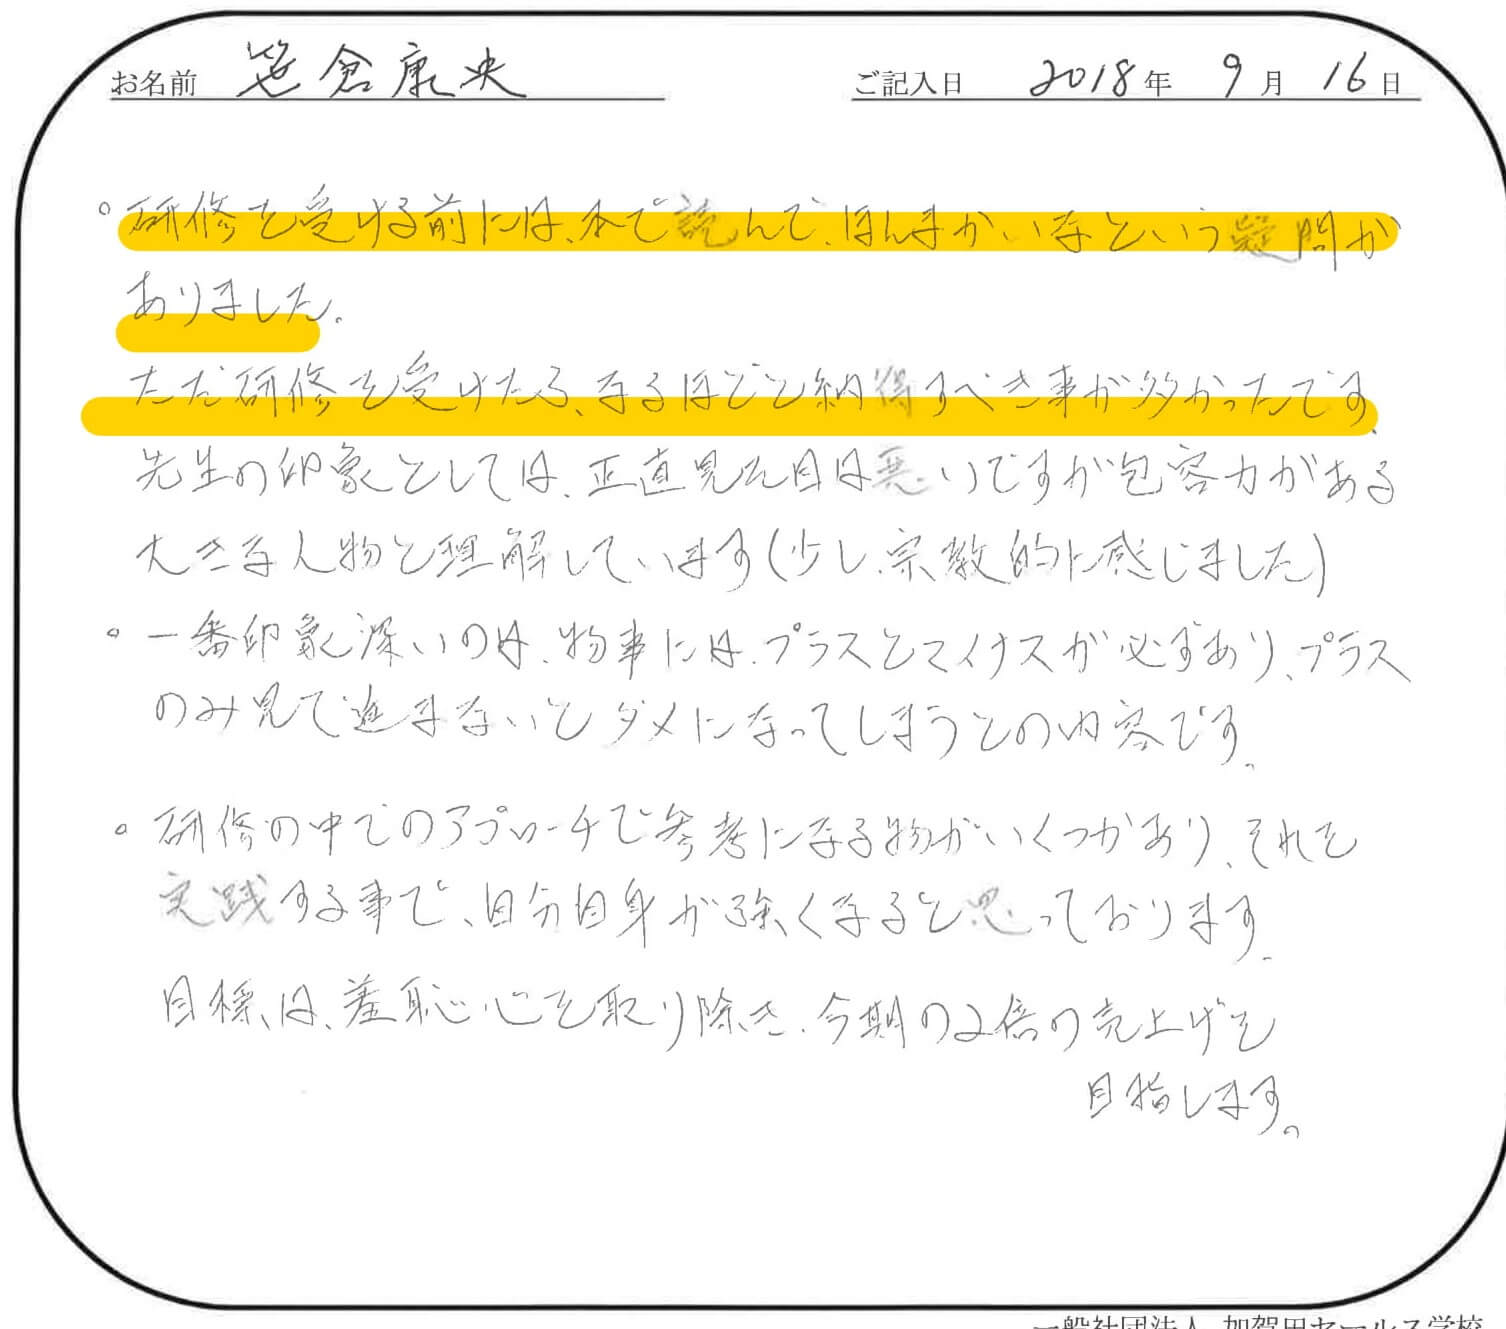 お名前 笹倉康央 ご記入日 2018年 9月 16日
。研修を受ける前には、本で読んで、ほんまかいなという疑問が
ありました。
ただ研修を受けたら、なるほどと納得すべき事が多かったです。
先生の印象としては、正直見た目は悪いですが包容力がある
大きな人物と理解しています(少し、宗教的に感じました)
。一番印象深いのは、物事には、プラスとマイナスが必ずあり、プラス
のみ見て進まないとダメになってしまうとの内容です。
。研修の中でのアプローチで参考になる物がいくつかあり、それを
実践する事で、自分自身が強くなると思っております。
目標は、羞恥心を取り除き、今期の2倍の売上げを
目指します。
一般社団法人 加賀田セールス学校